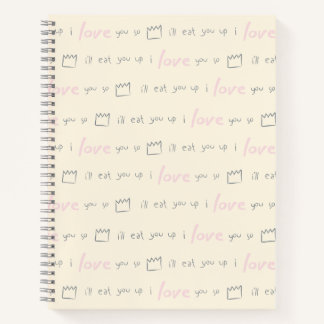 ill eat you up i love you so ill eat you up i
love you so ill eat you up i love you so
ill eat you up i love you so ill eat you up i
love you so ill eat you up i love you so
ill eat you up i love you so ill eat you up i
love you so ill eat you up i love you so
ill eat you up i love you so ill eat you up i
love you so ill eat you up i love you so
ill eat you up i love you so